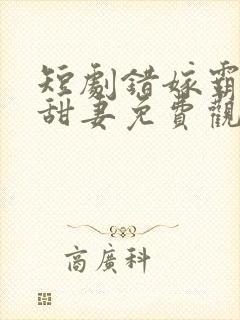 短劇錯嫁霸
甜妻免費觀
高廣科